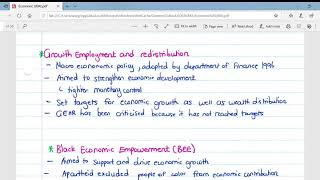 Economic (BVA).pdf
* Growth Employment and redistribution
- Macro economic policy, adopted by department of Finance 1996
- Aimed to strengthen economic development
↳ tighter monetary control
- Set targets for economic growth as well as wealth distribution
- GEAR has been criticised because it has not reached targets
* Black Economic Empowerment (BEE)
- Aimed to support and drive economic growth
- Apartheid excluded people of color from economic contribution